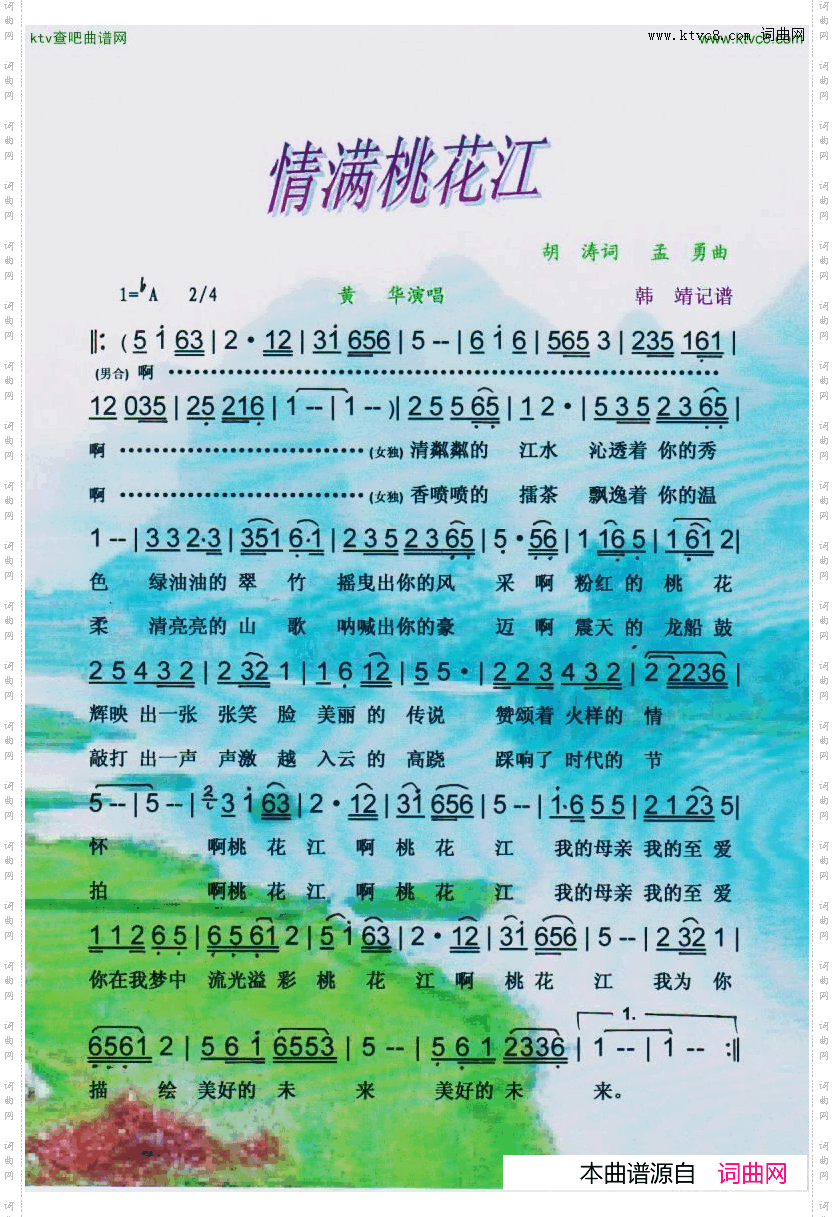 ktv查吧曲谱网
www.ktvc8.com 词曲网
www.ktvc8.com
情满桃花江
胡 涛词 孟 勇曲
1=♭A 2/4 黄 华演唱 韩 靖记谱
‖: ( 5 i 63 | 2 · 12 | 31 656 | 5 -- | 6 i 6 | 565 3 | 235 161 |
(男合) 啊
12 035 | 25 216 | 1 -- | 1 -- )‖ 2 5 5 65 | 1 2 · | 5 3 5 2 3 65 |
啊 (女独) 清粼粼的 江水 沁透着 你的秀
啊 (女独) 香喷喷的 擂茶 飘逸着 你的温
1 -- | 3 3 2·3 | 351 6·1 | 2 3 5 2 3 65 | 5 · 56 | 1 16 5 | 1 61 2|
色 绿油油的 翠 竹 摇曳出你的风 采 啊 粉红 的 桃 花
柔 清亮亮的 山 歌 呐喊出你的豪 迈 啊 震天 的 龙船 鼓
2 5 4 3 2 | 2 32 1 | 1 6 12 | 5 5 · | 2 2 3 4 3 2 | 2 2236 |
辉映 出一张 张笑 脸 美丽 的 传说 赞颂着 火样的 情
敲打 出一声 声激 越 入云 的 高跷 踩响了 时代的 节
5 -- | 5 -- | 3 i 63 | 2 · 12 | 31 656 | 5 -- | i·6 5 5 | 2 1 23 5|
怀 啊桃 花 江 啊 桃 花 江 我的母亲 我的至 爱
拍 啊桃 花 江 啊 桃 花 江 我的母亲 我的至 爱
1 1 2 6 5 | 6 5 61 2 | 5 i 63 | 2 · 12 | 31 656 | 5 -- | 2 32 1 |
你在我梦中 流光溢 彩 桃 花 江 啊 桃 花 江 我 为 你
6561 2 | 5 6 i 6553 | 5 -- | 5 6 1 2336 | 1 -- | 1 -- :‖
1.
描 绘 美好的 未 来 美好的 未 来。
本曲谱源自 词曲网